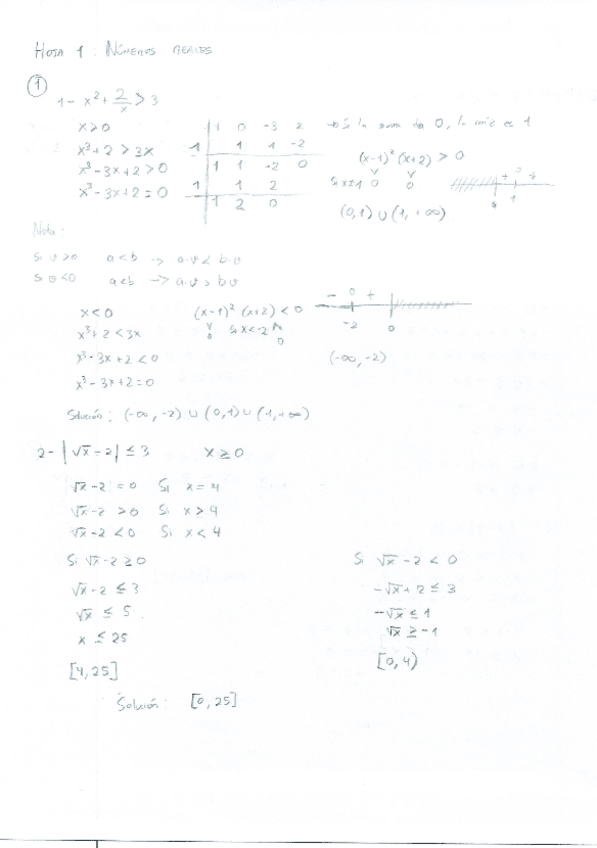 HOJA 1: NÚMEROS REALES
①
1- x² + 2/x > 3
x > 0
x³ + 2 > 3x
x³ - 3x + 2 > 0
x³ - 3x + 2 = 0
1 0 -3 2
1 1 1 -2
1 1 -2 0
1 1 2
1 2 0
→ Si la suma da 0, la raíz es 1
(x-1)² (x+2) > 0
Si x≠1
0 0
+ 0 +
0 1
(0,1) ∪ (1,+∞)
Nota:
Si v>0 a<b → a·v < b·v
Si v<0 a<b → a·v > b·v
x < 0
x³ + 2 < 3x
x³ - 3x + 2 < 0
x³ - 3x + 2 = 0
(x-1)² (x+2) < 0
0 Si x<-2 0
- 0 +
-2 0
(-∞, -2)
Solución: (-∞, -2) ∪ (0,1) ∪ (1,+∞)
2- |√x - 2| ≤ 3 x ≥ 0
√x - 2 = 0 Si x = 4
√x - 2 > 0 Si x > 4
√x - 2 < 0 Si x < 4
Si √x - 2 ≥ 0
√x - 2 ≤ 3
√x ≤ 5
x ≤ 25
[4, 25]
Si √x - 2 < 0
-√x + 2 ≤ 3
-√x ≤ 1
√x ≥ -1
[0, 4)
Solución: [0, 25]